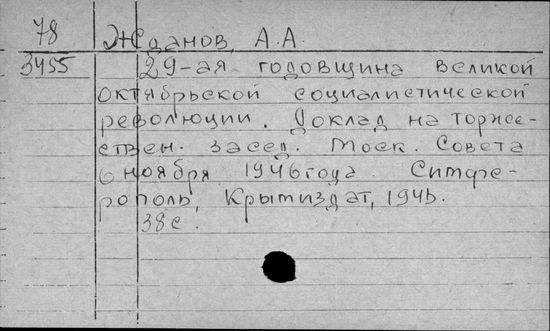 78 Жданов, А.А.
3455 29-ая годовщина великой
октябрьской социалистической
революции. Доклад на торже-
ствен. засед. Моск. Совета
6 ноября 1946 года Симфе-
рополь, Крымиздат, 1946.
38 с.